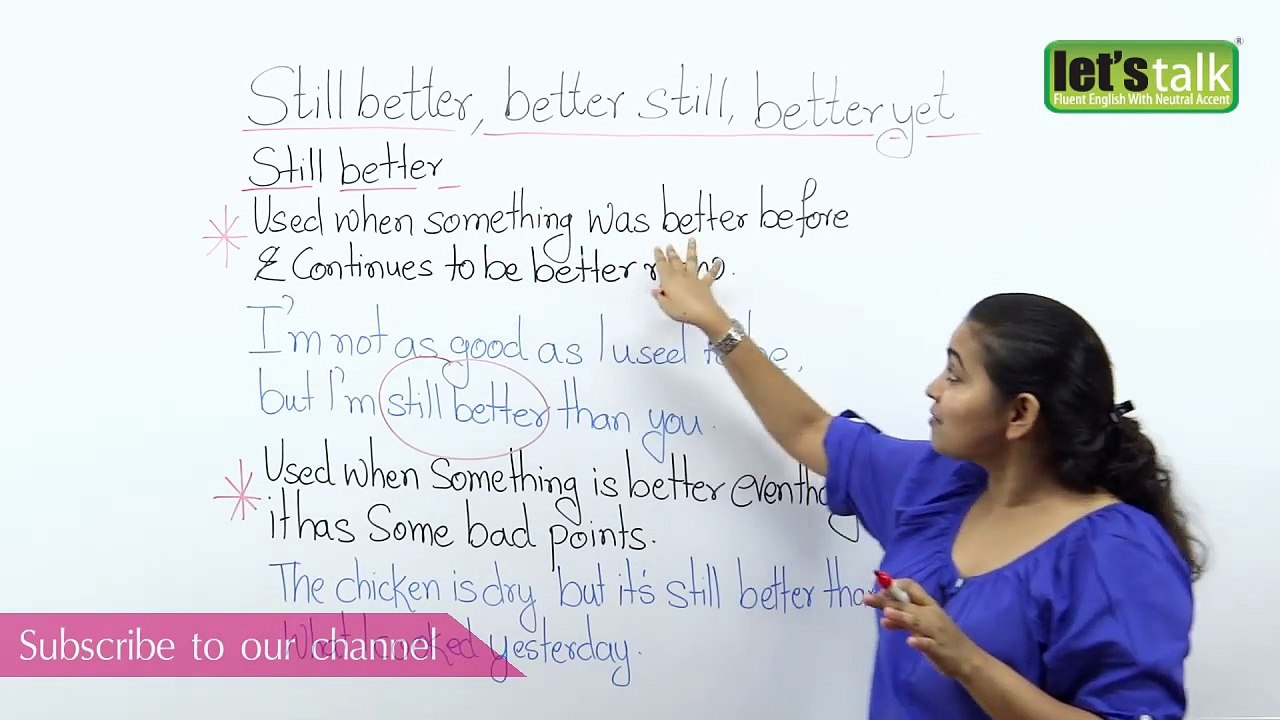 let's talk
Fluent English With Neutral Accent
Still better, better still, better yet
Still better
Used when something was better before
& Continues to be better
I'm not as good as I used to be,
but I'm still better than you.
Used when Something is better even
it has Some bad points.
The chicken is dry but it's still better than
What I cooked yesterday.
Subscribe to our channel